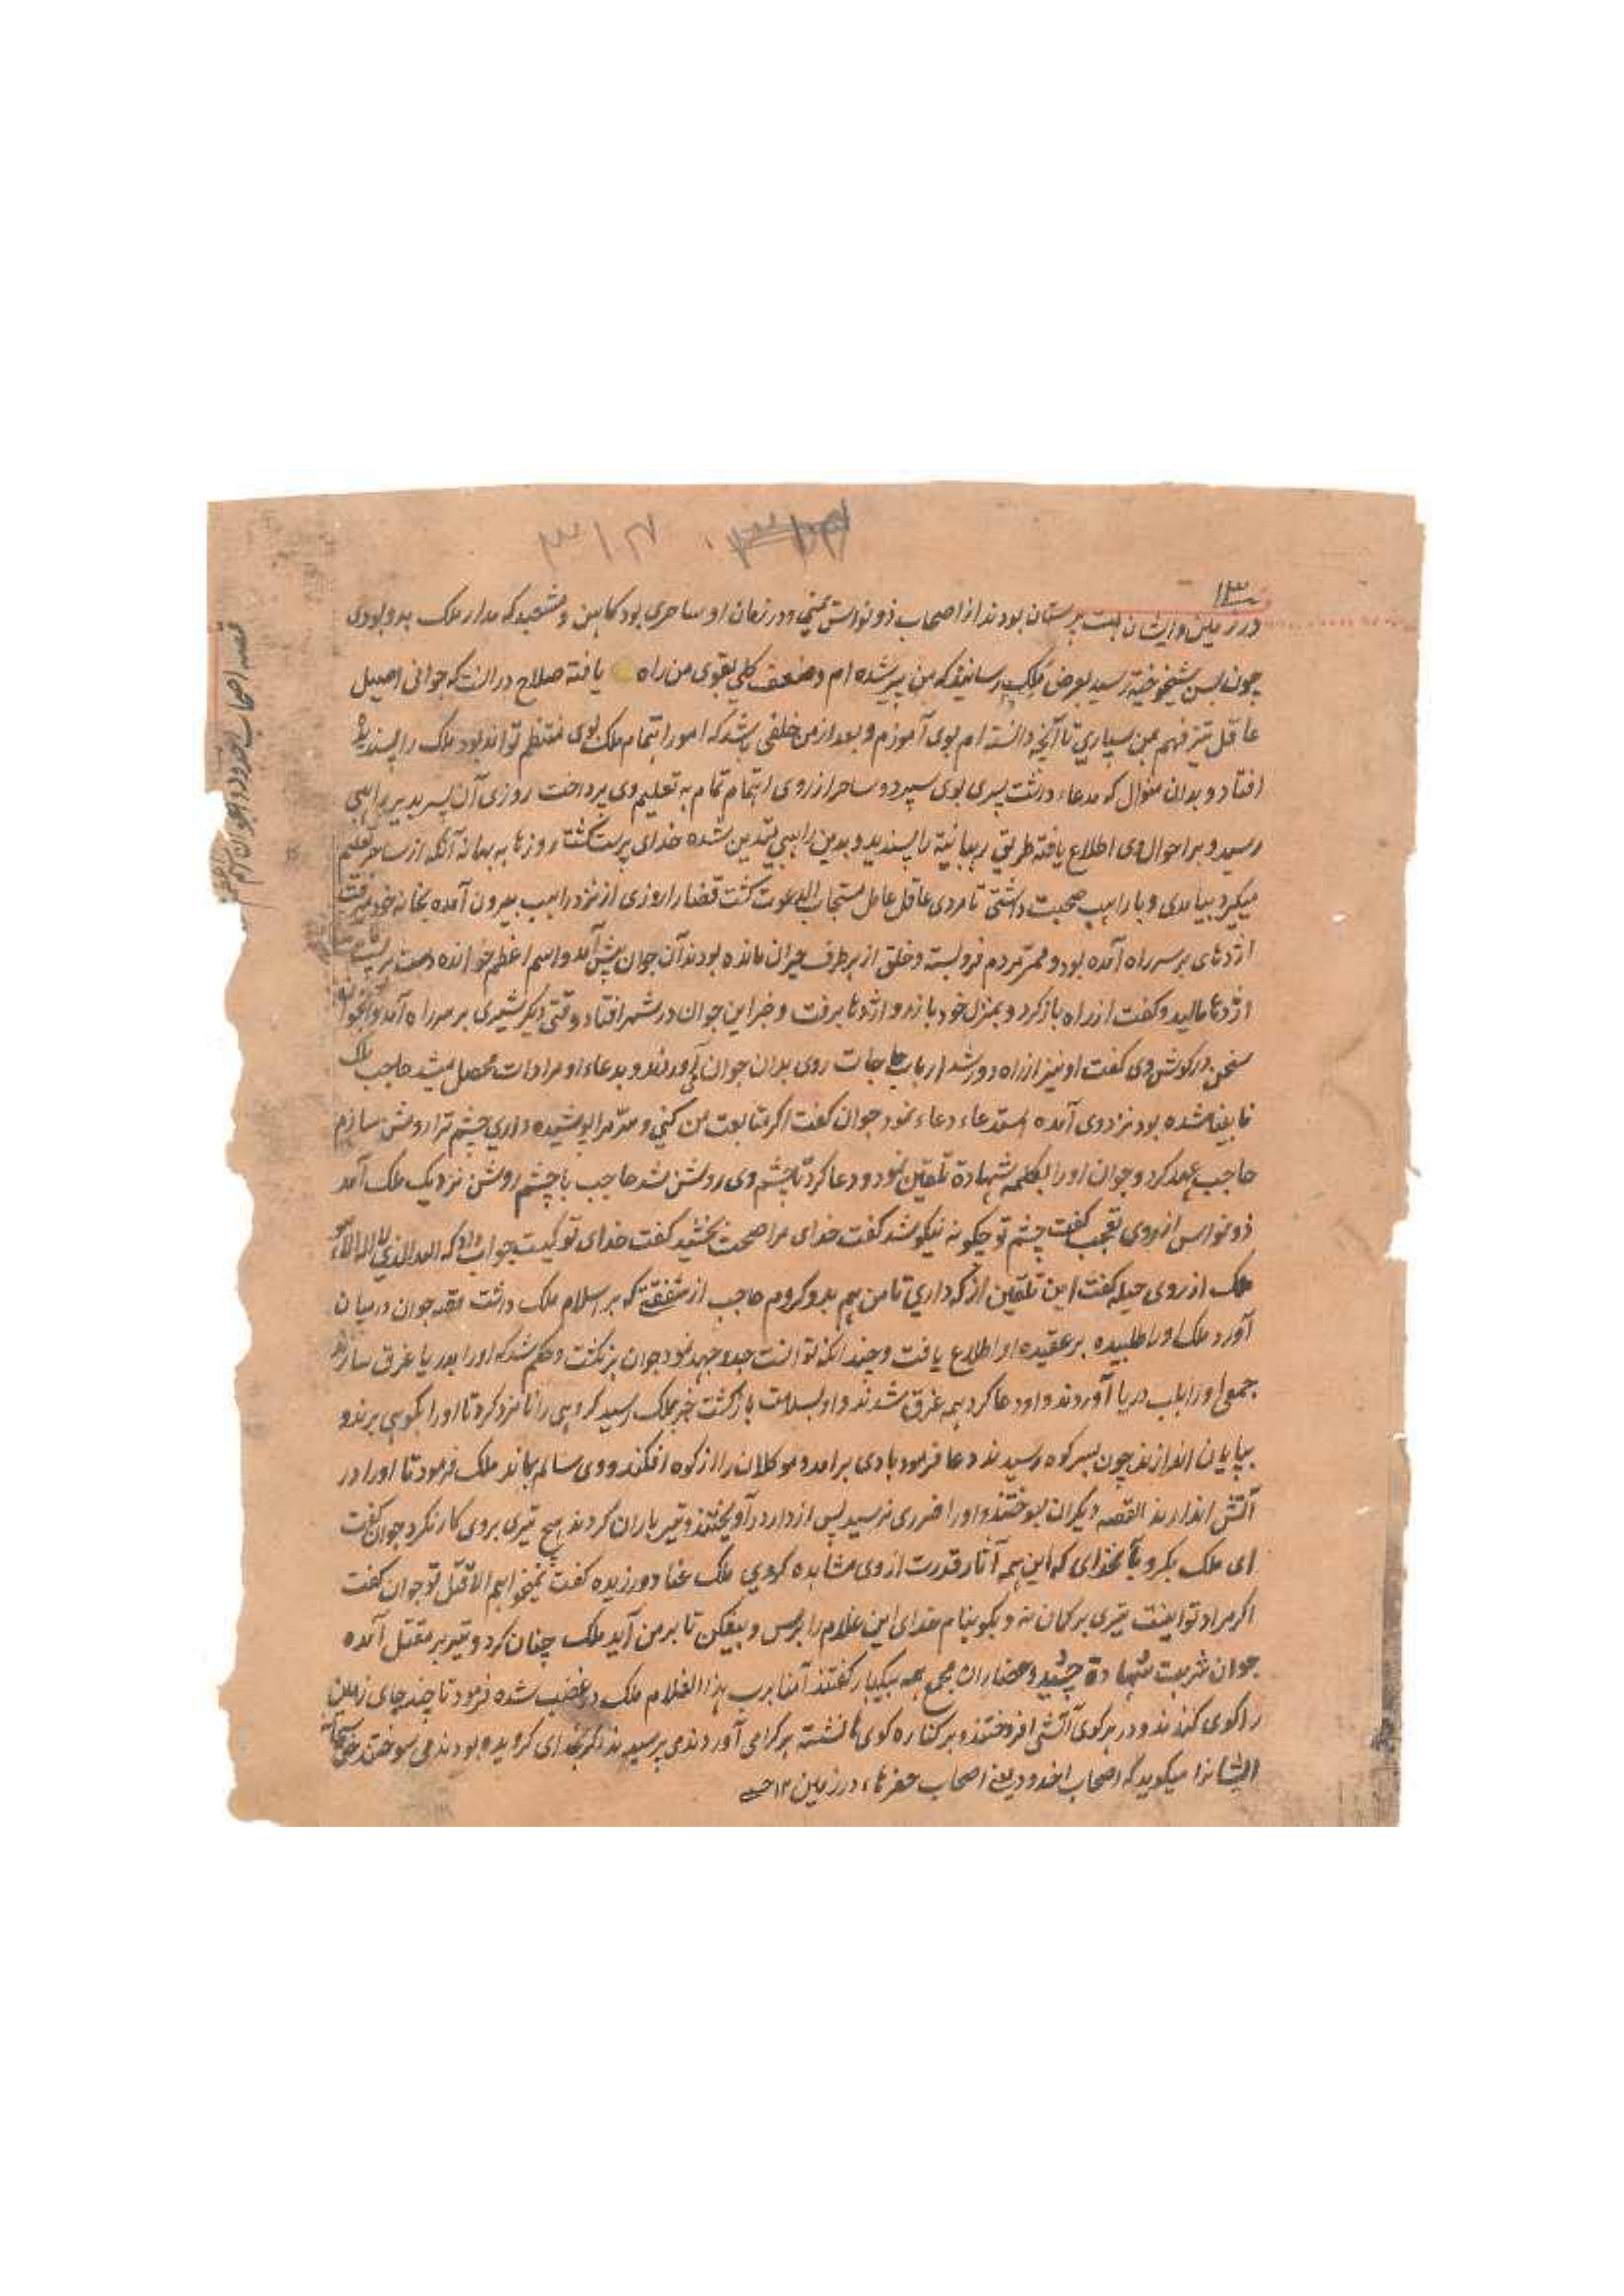 ۱۳
در زمین و ایشان بت پرستان بودند از اصحاب ذونواس یمنی و در زمان او ساحری بود کاهن و مشعبد که مدار ملک بدو بودی
چون بسن شیخوخیة رسید بعرض ملک رسانید که من پیر شده ام و ضعف کلی بقوی من راه یافته صلاح درانست که جوانی اصیل
عاقل تیز فهم بمن سپاری تا آنچه دانسته ام بوی آموزم و بعد از من خلفی باشد که امور اتمام ملک بوی منتظم تواند بود ملک را پسندیده
افتاد و بدان منوال که مدعاء داشت پسری بوی سپرد و ساحر از روی اهتمام تمام به تعلیم وی پرداخت روزی آن پسر بدیر راهبی
رسید و بر احوال وی اطلاع یافته طریق رهبانیة را پسندید و بدین راهبی متدین شده خدای پرست گشت روزها به بهانه آنکه از ساحر تعلیم
میگیرد بیامدی و با راهب صحبت داشتی تا مردی عاقل عامل مستجاب الدعوت گشت قضا را روزی از نزد راهب بیرون آمده بخانه خود میرفت
اژدهای بر سر راه آمده بود و ممر مردم فروبسته و خلق از هر طرف حیران مانده بودند آن جوان پیش آمد و اسم اعظم خوانده دست بر پشت
اژدها مالید و گفت از راه بازگرد و بمنزل خود باز رو اژدها برفت و خبر این جوان در شهر افتاد وقتی دیگر شیری بر سر راه آمد و آنجوان
سخن در گوش وی گفت او نیز از راه دور شد ارباب حاجات روی بدان جوان آوردند و بدعاء او مرادات محصل میشد حاجب ملک
نابینا شده بود نزد وی آمده استدعاء دعاء نمود جوان گفت اگر متابعت من کنی و سر مرا پوشیده داری چشم ترا روشن سازم
حاجب عهد کرد و جوان او را بکلمه شهادة تلقین نمود و دعا کرد تا چشم وی روشن شد حاجب با چشم روشن نزدیک ملک آمد
ذونواس از روی تعجب گفت چشم تو چگونه نیکو شد گفت خدای مرا صحت بخشید گفت خدای تو کیست جواب داد که الله الذی لا اله الا هو
ملک از روی حیله گفت این تلقین از که داری تا من هم بدو گروم حاجب از شفقتی که بر اسلام ملک داشت قصه جوان درمیان
آورد ملک او را طلبیده بر عقیده او اطلاع یافت و چندانکه توانست جد و جهد نمود جوان برنگشت و حکم شد که او را بدریا غرق سازند
جمعی او را بلب دریا آوردند و او دعا کرد همه غرق شدند و او بسلامت بازگشت خبر بملک رسید گروهی را نامزد کرد تا او را بکوهی برند و
بپایان اندازند چون بسر کوه رسیدند دعا فرمود بادی برآمد و موکلان را از کوه افکند و وی سالم بماند ملک فرمود تا او را در
آتش اندازند القصه دیگران بسوختند و او را ضرری نرسید پس از دار درآویختند و تیر باران کردند هیچ تیری بروی کار نکرد جوان گفت
ای ملک بگرو بخدای که این همه آثار قدرت از وی مشاهده کردی ملک عناد ورزیده گفت نمیخواهم الا قتل تو جوان گفت
اگر مراد تو اینست تیری بر کمان نه و بگو بنام خدای این غلام را برس و بیفکن تا بر من آید ملک چنان کرد و تیر بر مقتل آمده
جوان شربت شهادة چشید و حضاران مجمع همه بیکبار گفتند آمنا برب هذا الغلام ملک در غضب شده فرمود تا چند جای زمین
را کوی کندند و در هر کوی آتشی افروختند و بر کناره کوی ها نشسته هر کرا می آوردندی پرسیدند اگر بخدای گرویده بودند می سوختند حق سبحانه
ایشانرا میگوید که اصحاب اخدود یعنی اصحاب حفرهاء در زمین ۱۲ حسینی
قصه اصحاب اخدود و جوان